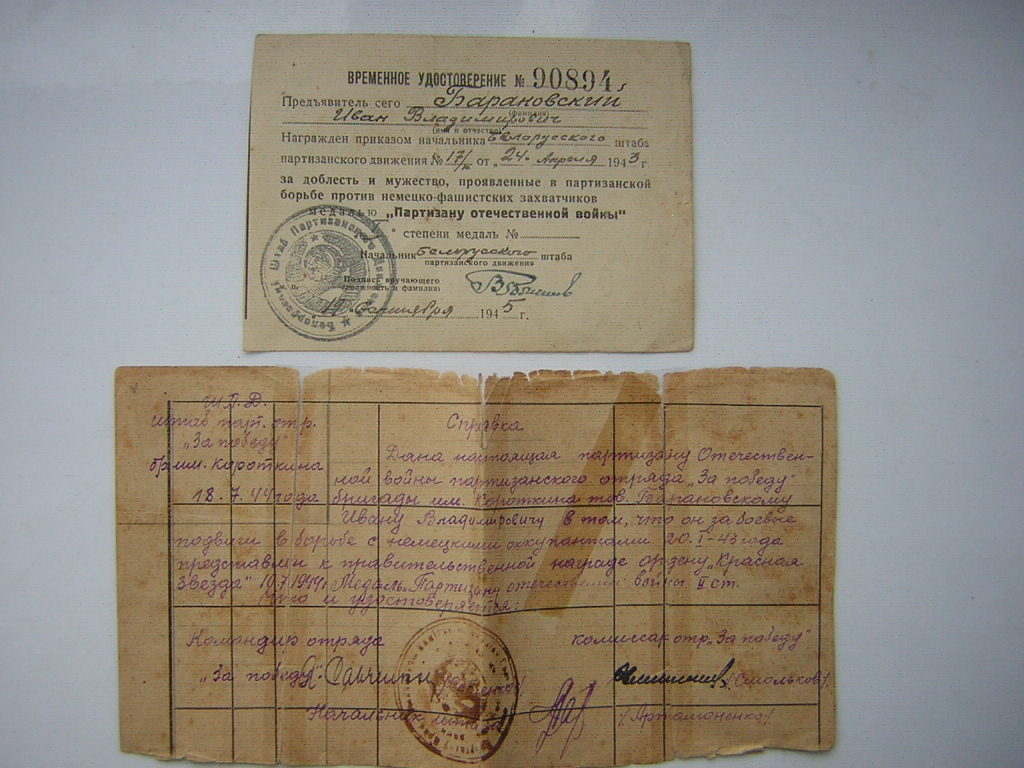 ВРЕМЕННОЕ УДОСТОВЕРЕНИЕ № 90894
Предъявитель сего Барановский
(фамилия)
Иван Владимирович
(имя и отчество)
Награжден приказом начальника Белорусского штаба
партизанского движения № 17/н от „24" Апреля 1943 г.
за доблесть и мужество, проявленные в партизанской
борьбе против немецко-фашистских захватчиков
медалью „Партизану отечественной войны"
" степени медаль №
Начальник Белорусского штаба
партизанского движения
Подпись вручающего
(должность и фамилия)
19 Сентября 1945 г.
Белорусский Штаб Партизанского Движения
Ш.П.Д.
штаб парт. отр.
„За победу"
бр. им. Короткина
18.7.44 года
Справка
Дана настоящая партизану Отечествен-
ной войны партизанского отряда „За победу"
бригады им. Короткина тов. Барановскому
Ивану Владимировичу в том, что он за боевые
подвиги в борьбе с немецкими оккупантами 20.I-43 года
представлен к правительственной награде ордену „Красная
Звезда" 10.7.1944г. Медаль Партизану отечественной войны II ст.
Что и удостоверяется:
Командир отряда комиссар отр. „За победу"
„За победу" /Смольков/
Начальник штаба /Артамоненко/